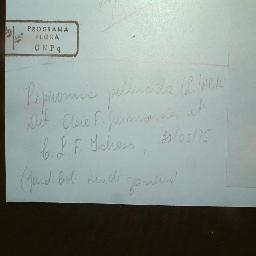 PROGRAMA
FLORA
CNPq
Peperomia pellucida (L.) HBK
Det. Elsie F. Guimarães et
C. L. F. Ichaso, 20/05/75
(Jard. Bot. Rio de Janeiro)